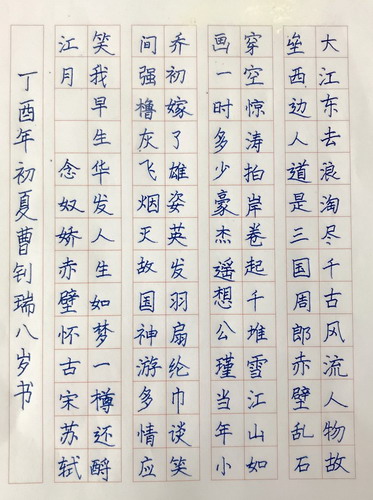 大江东去浪淘尽千古风流人物故
垒西边人道是三国周郎赤壁乱石
穿空惊涛拍岸卷起千堆雪江山如
画一时多少豪杰遥想公瑾当年小
乔初嫁了雄姿英发羽扇纶巾谈笑
间强橹灰飞烟灭故国神游多情应
笑我早生华发人生如梦一樽还酹
江月 念奴娇赤壁怀古宋苏轼
丁酉年初夏曹钊瑞八岁书